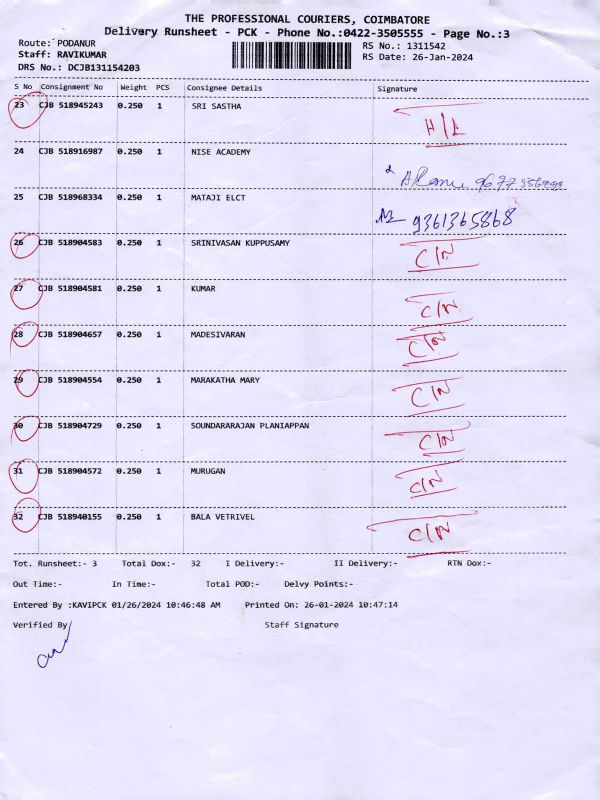 THE PROFESSIONAL COURIERS, COIMBATORE
Delivery Runsheet - PCK - Phone No.:0422-3505555 - Page No.:3
Route: PODANUR RS No.: 1311542
Staff: RAVIKUMAR RS Date: 26-Jan-2024
DRS No.: DCJB131154203
S No Consignment No Weight PCS Consignee Details Signature
23 CJB 518945243 0.250 1 SRI SASTHA H/L
24 CJB 518916987 0.250 1 NISE ACADEMY
25 CJB 518968334 0.250 1 MATAJI ELCT 9361365868
26 CJB 518904583 0.250 1 SRINIVASAN KUPPUSAMY C/N
27 CJB 518904581 0.250 1 KUMAR C/N
28 CJB 518904657 0.250 1 MADESIVARAN C/N
29 CJB 518904554 0.250 1 MARAKATHA MARY C/N
30 CJB 518904729 0.250 1 SOUNDARARAJAN PLANIAPPAN C/N
31 CJB 518904572 0.250 1 MURUGAN C/N
32 CJB 518940155 0.250 1 BALA VETRIVEL C/N
Tot. Runsheet:- 3 Total Dox:- 32 I Delivery:- II Delivery:- RTN Dox:-
Out Time:- In Time:- Total POD:- Delvy Points:-
Entered By :KAVIPCK 01/26/2024 10:46:48 AM Printed On: 26-01-2024 10:47:14
Verified By Staff Signature